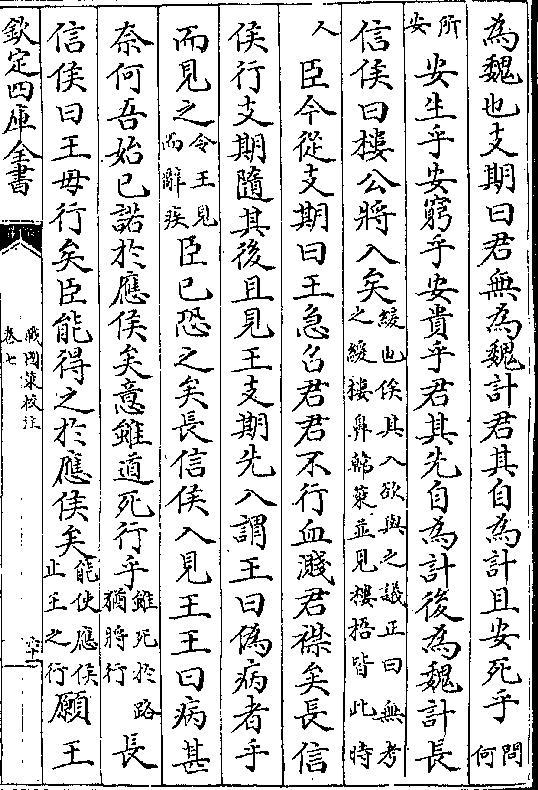 為魏也支期曰君無為魏計君其自為計且安死乎問何
所安安生乎安窮乎安貴乎君其先自為計後為魏計長
信侯曰樓公將入矣緩也俟其入欲與之議正曰無考之緩樓鼻韓策並見樓梧皆此時
人臣今從支期曰王急召君君不行血濺君襟矣長信
侯行支期隨其後且見王支期先入謂王曰偽病者乎
而見之令王見而辭疾臣已恐之矣長信侯入見王王曰病甚
奈何吾始已諾於應侯矣意雖道死行乎雖死於路猶將行長
信侯曰王毋行矣臣能得之於應侯矣能使應侯止王之行願王
欽定四庫全書
戰國策校注
卷七